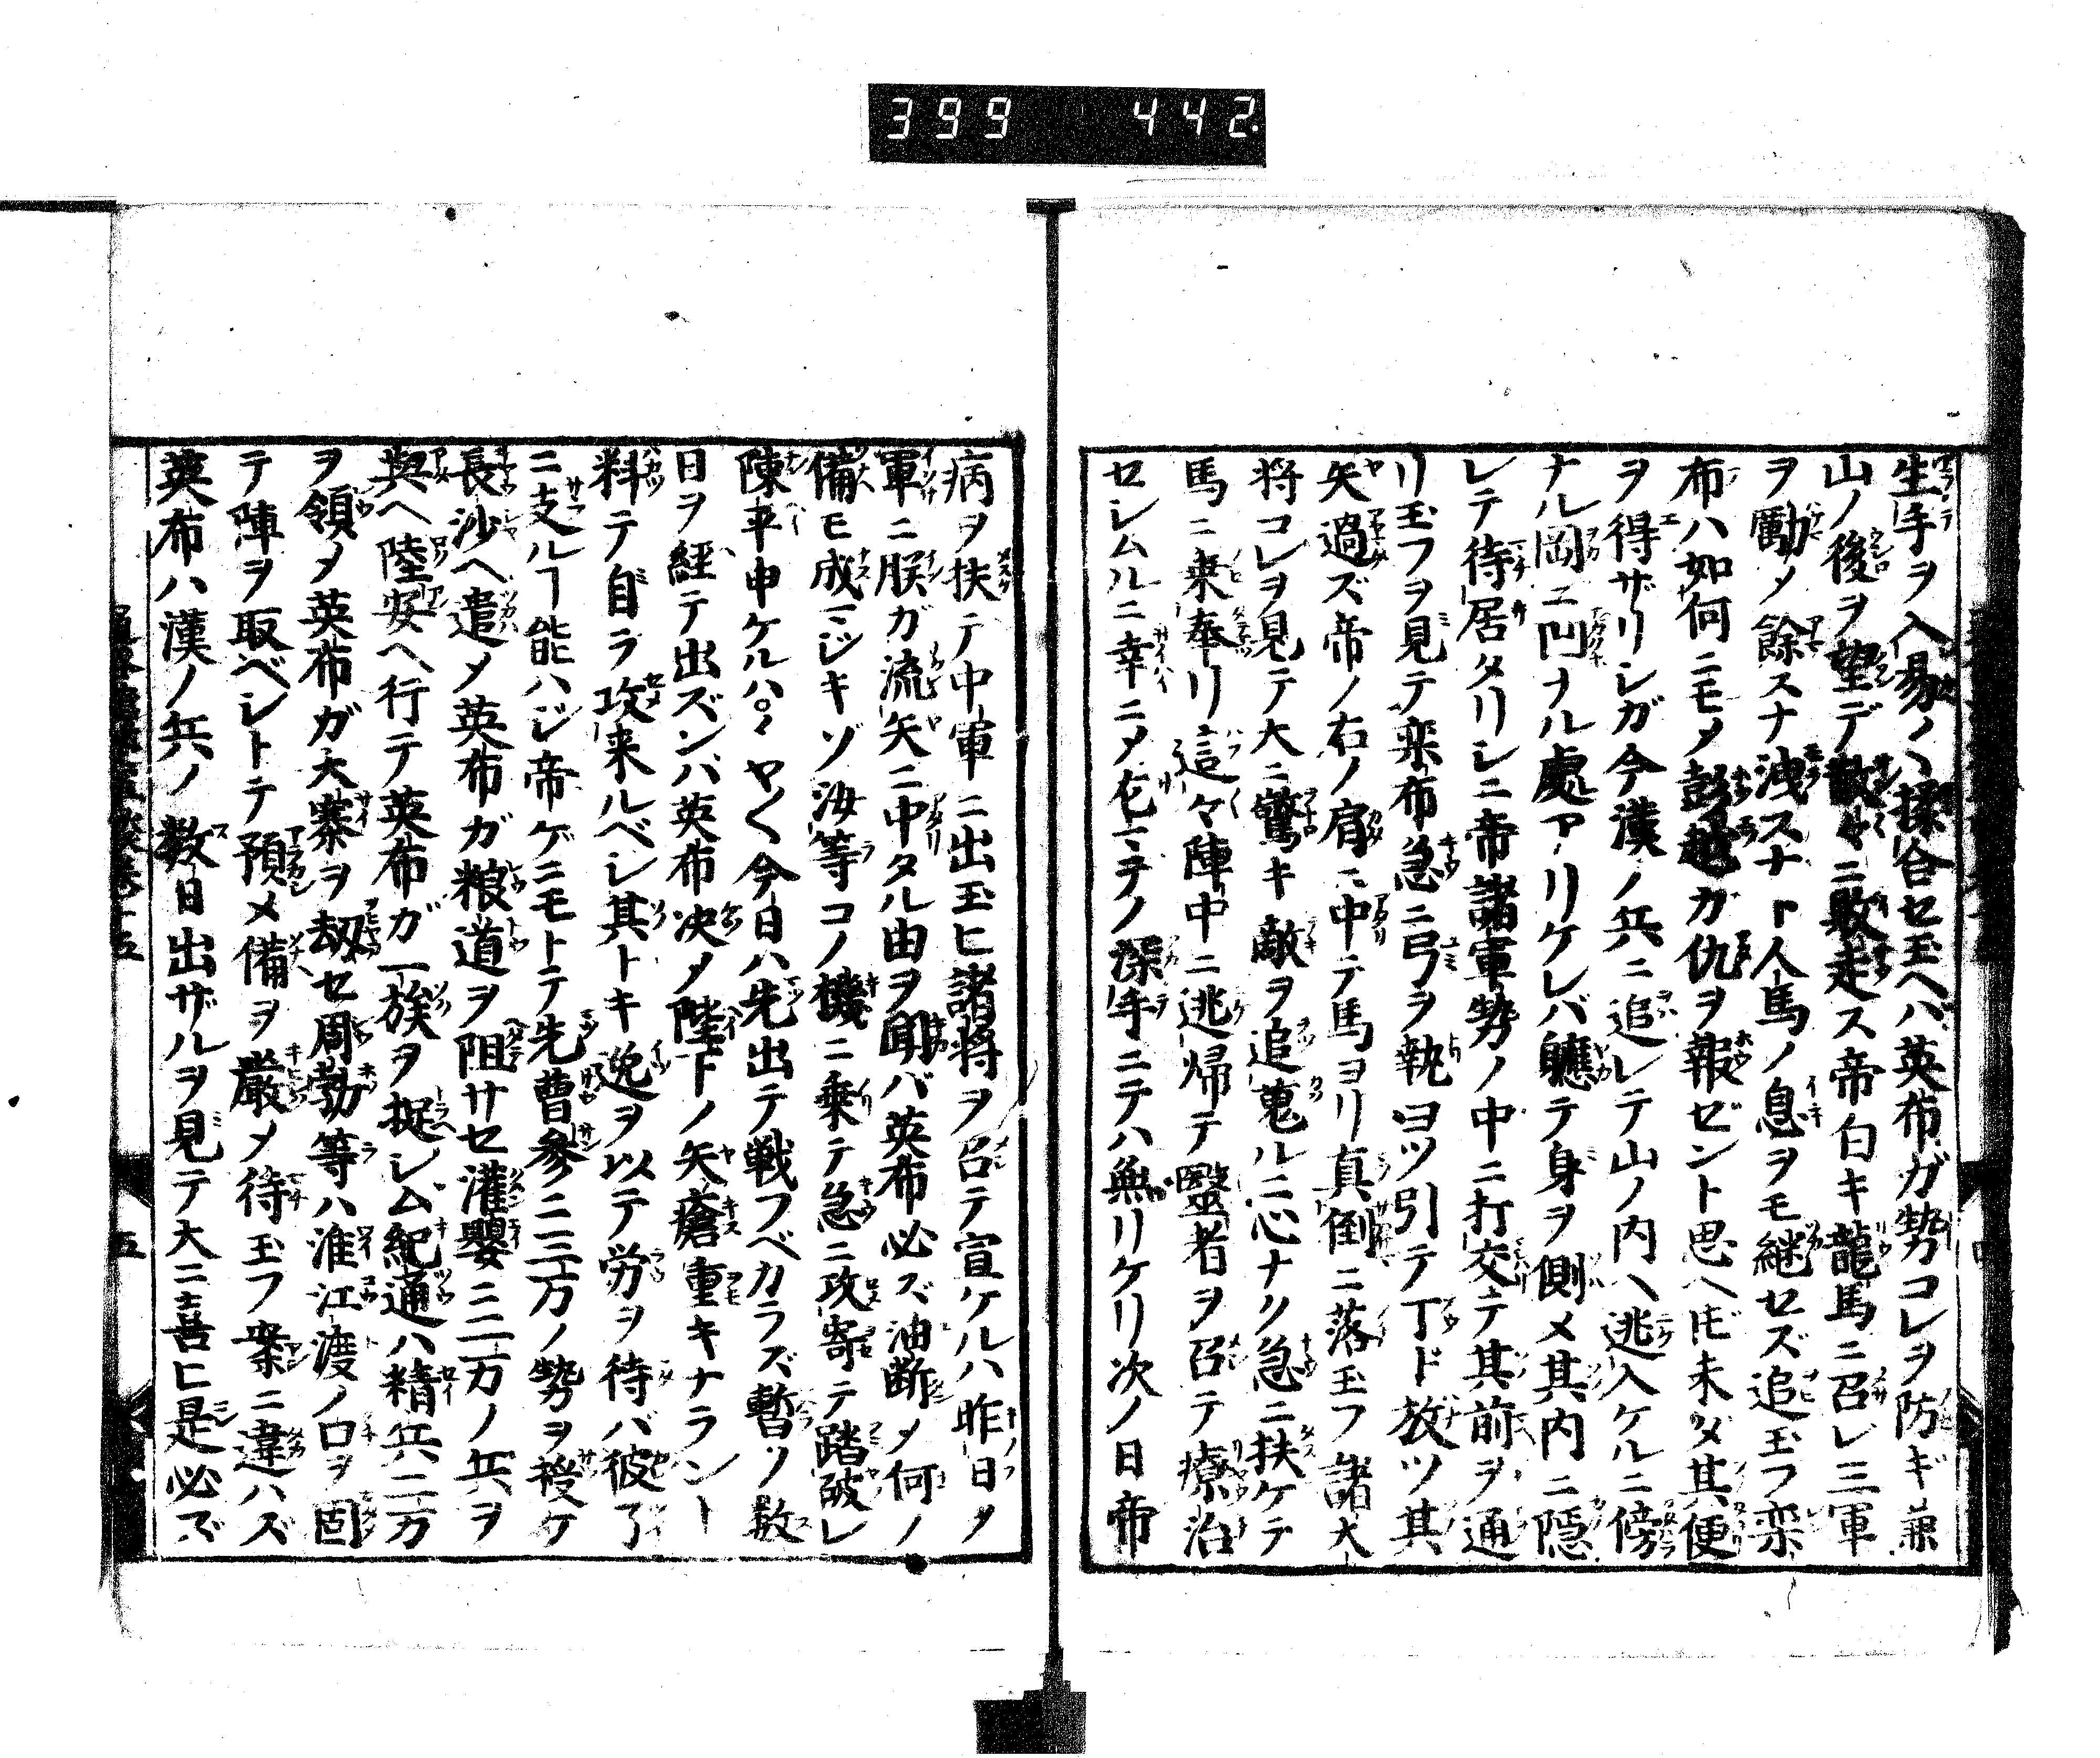 399 442
生手ヲ入易ノヘ揉合セ玉ヘバ英布ガ勢コレヲ防ギ兼
山ノ後ヲ望デ散々ニ敗走ス帝白キ龍馬ニ召レ三軍
ヲ勵メ餘スナ洩スナト人馬ノ息ヲモ継セズ追玉フ栾
布ハ如何ニモメ彭越カ仇ヲ報ゼント思ヘ𪜈未ダ其便
ヲ得ザリシガ今漢ノ兵ニ追レテ山ノ内ヘ逃入ケルニ傍
ナル岡ニ凹ナル處アリケレバ軈テ身ヲ側メ其内ニ隠
レテ待居タリシニ帝諸軍勢ノ中ニ打交テ其前ヲ通
リ玉フヲ見テ栾布急ニ弓ヲ執ヨツ引テ丁ド放ツ其
矢過ズ帝ノ右ノ肩ニ中テ馬ヨリ真倒ニ落玉フ諸大
将コレヲ見テ大ニ驚キ敵ヲ追蒐ルニ心ナク急ニ扶ケテ
馬ニ乗奉リ這々陣中ニ逃帰テ醫者ヲ召テ療治
セシムルニ幸ニメ左ミテノ深手ニテハ無リケリ次ノ日帝
病ヲ扶テ中軍ニ出玉ヒ諸将ヲ召テ宣ケルハ昨日ノ
軍ニ朕ガ流矢ニ中タル由ヲ聞バ英布必ズ油断メ何ノ
備モ成ミジキゾ汝等コノ機ニ乗テ急ニ攻寄テ踏破レ
陳平申ケルハヤく今日ハ先出テ戦フベカラズ暫ク数
日ヲ経テ出ズンバ英布决メ陛下ノ矢瘡重キナラント
料テ自ラ攻来ルベシ其トキ逸ヲ以テ労ヲ待バ彼了
ニ支ルヿ能ハジ帝ゲニモトテ先曹參ニ三万ノ勢ヲ授ケ
長沙ヘ遣メ英布ガ粮道ヲ阻サセ灌嬰ニ二万ノ兵ヲ
與ヘ陸安ヘ行テ英布ガ一族ヲ捉シム紀通ハ精兵二万
ヲ領メ英布ガ大寨ヲ刼セ周勃等ハ淮江渡ノ口ヲ固
テ陣ヲ取ベシトテ預メ備ヲ厳メ待玉フ案ニ違ハズ
英布ハ漢ノ兵ノ数日出ザルヲ見テ大ニ喜ヒ是必ズ
五